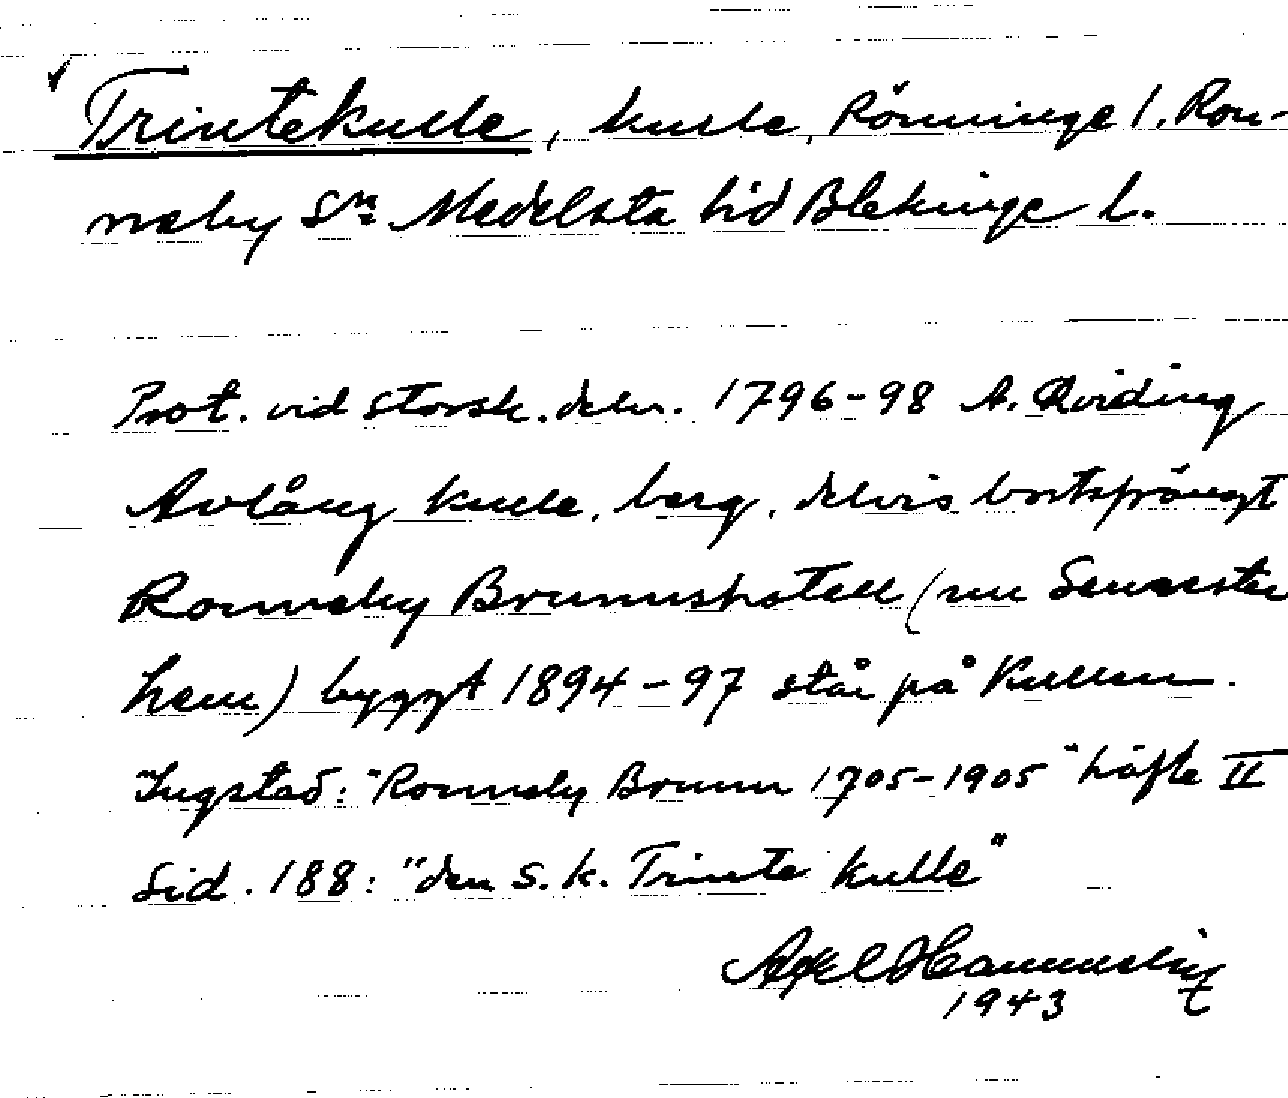 Trintekulle, kulle, Rönninge l. Ron-
neby Sn Medelsta hd Blekinge l.
Prot. vid storsk. deln. 1796-98 A. Qviding
Avlång kulle, berg, delvis bortsprängt
Ronneby Brunnshotell (nu Semester
hem) byggt 1894-97 står på Kullen.
Tugstad: "Ronneby Brunn 1705-1905" häfte II
Sid. 188: "den s.k. Trinte kulle"
Axel
1943